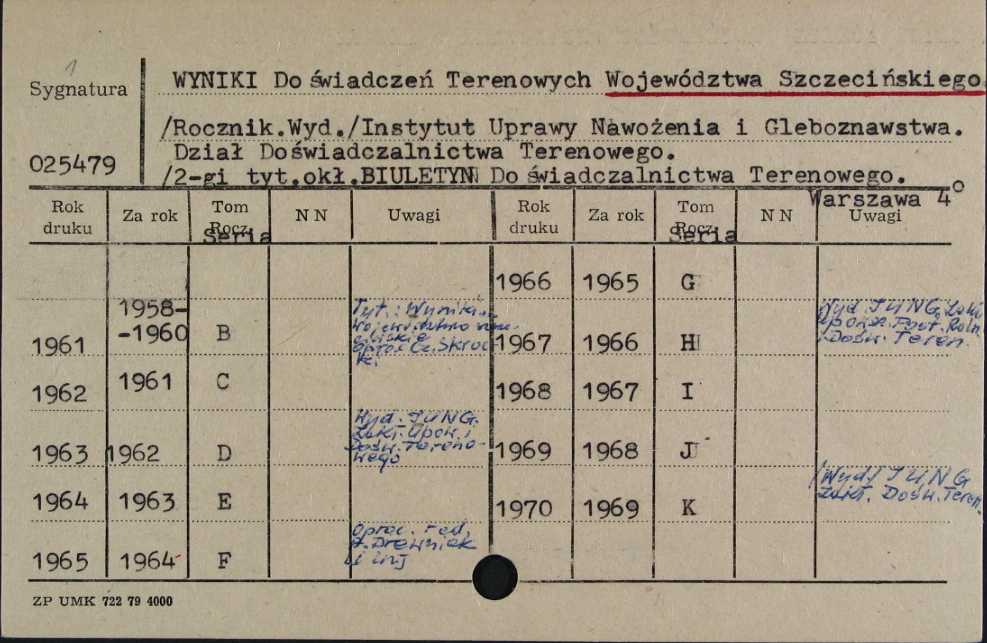 1
Sygnatura
025479
WYNIKI Doświadczeń Terenowych Województwa Szczecińskiego
/Rocznik.Wyd./Instytut Uprawy Nawożenia i Gleboznawstwa.
Dział Doświadczalnictwa Terenowego.
/2-gi tyt.okł.BIULETYN Doświadczalnictwa Terenowego.
Warszawa 4°
Rok druku Za rok Tom Rocz. Seria N N Uwagi Rok druku Za rok Tom Rocz. Seria N N Uwagi
1966 1965 G
1961 1958-
-1960 B Tyt.: Wyniki
oprac. Cz. Skroc
1967 1966 H Wyd. IUNG. Zakł.
Upow. Post. Roln.
i Dośw. Teren.
1962 1961 C
1968 1967 I
1963 1962 D Wyd. IUNG.
Zakł. Upow. i
Dośw. Tereno-
wego
1969 1968 J
1964 1963 E
1970 1969 K /Wyd/ IUNG
Zakł. Dośw. Teren.
1965 1964 F Oprac. red.
Drewniak
i inj
ZP UMK 722 79 4000